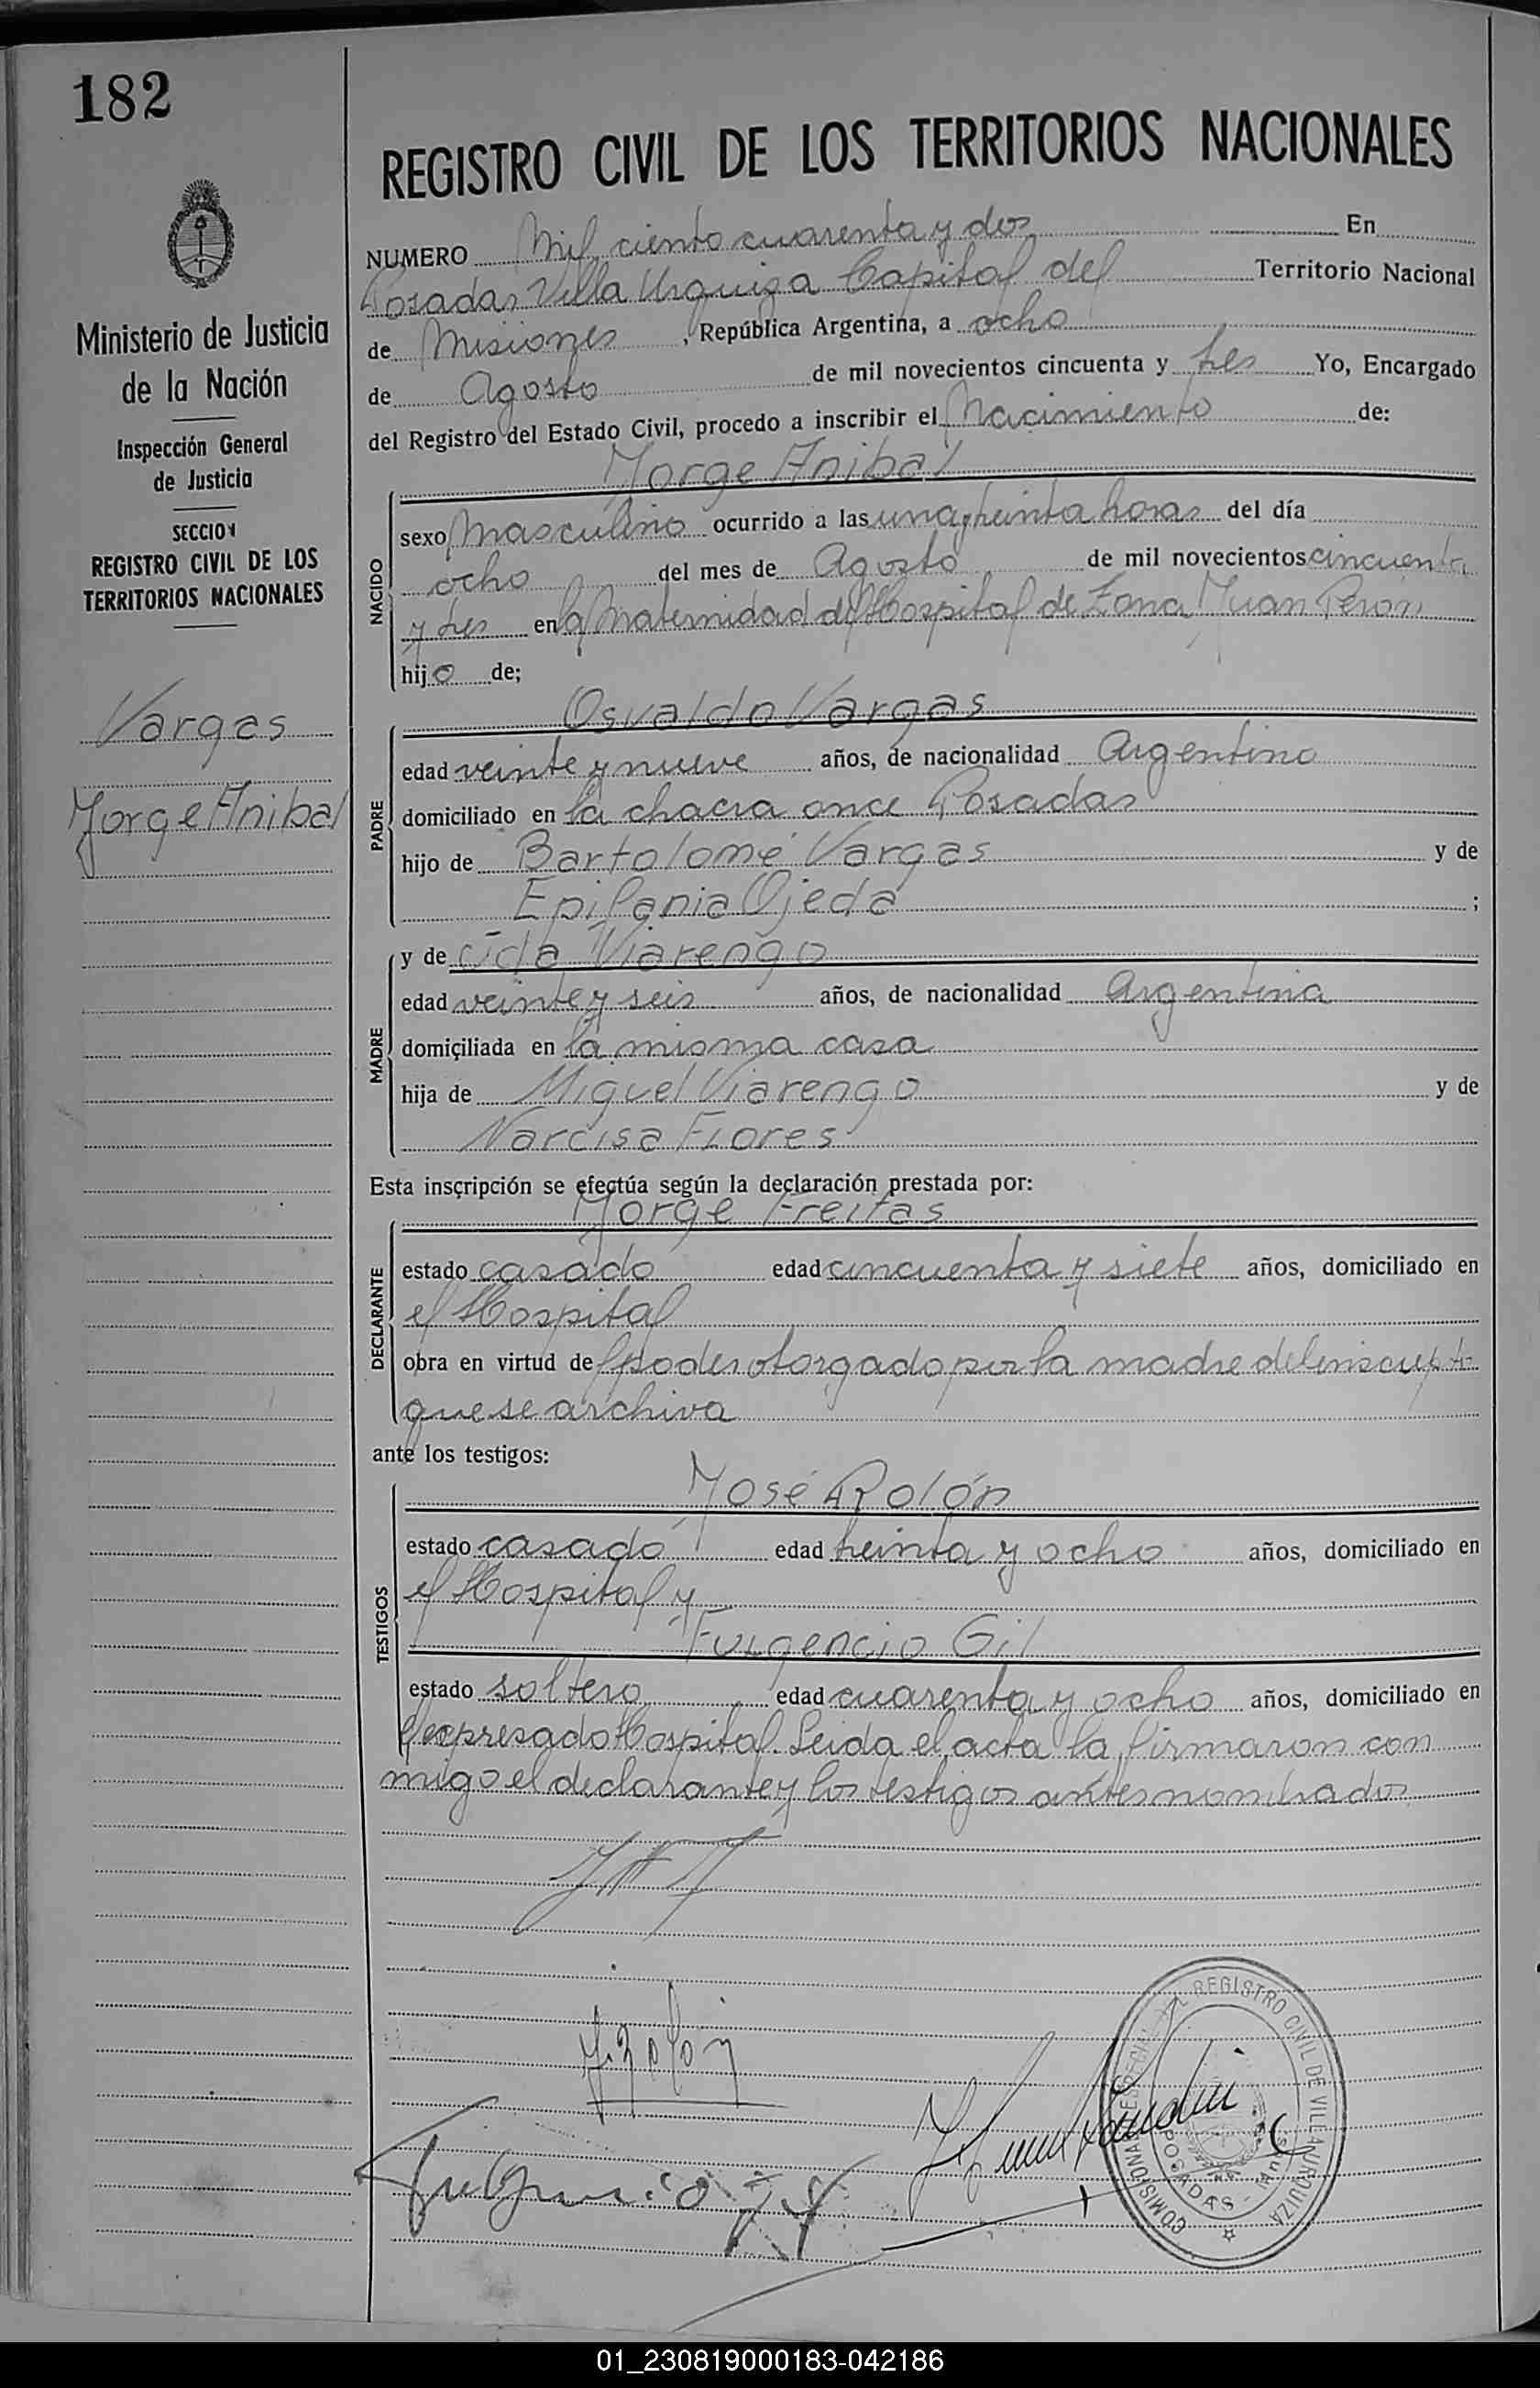 182
Ministerio de Justicia
de la Nación
Inspección General
de Justicia
SECCION
REGISTRO CIVIL DE LOS
TERRITORIOS NACIONALES
Vargas
Jorge Anibal
REGISTRO CIVIL DE LOS TERRITORIOS NACIONALES
NUMERO Mil ciento cuarenta y dos En
Posadas Villa Urquiza Capital del Territorio Nacional
de Misiones, República Argentina, a ocho
de Agosto de mil novecientos cincuenta y tres Yo, Encargado
del Registro del Estado Civil, procedo a inscribir el Nacimiento de:
Jorge Anibal
NACIDO
sexo Masculino ocurrido a las una y treinta horas del día
ocho del mes de Agosto de mil novecientos cincuenta
y tres en la Maternidad del Hospital de Zona Juan Peron
hijo de;
Osvaldo Vargas
PADRE
edad veinte y nueve años, de nacionalidad Argentino
domiciliado en la chacra once Posadas
hijo de Bartolomé Vargas y de
Epifania Ojeda ;
y de Oida Viarengo
MADRE
edad veinte y seis años, de nacionalidad Argentina
domiciliada en la misma casa
hija de Miguel Viarengo y de
Narcisa Flores
Esta inscripción se efectúa según la declaración prestada por:
Jorge Freitas
DECLARANTE
estado casado edad cincuenta y siete años, domiciliado en
el Hospital
obra en virtud de poder otorgado por la madre del inscripto
que se archiva
ante los testigos:
José Rolón
TESTIGOS
estado casado edad treinta y ocho años, domiciliado en
el Hospital y
Fulgencio Gil
estado soltero edad cuarenta y ocho años, domiciliado en
el expresado Hospital. Leida el acta la firmaron con
migo el declarante y los testigos antes nombrados
J. Rolón
Fulgencio Gil
COMISIONADO ESPECIAL DEL REGISTRO CIVIL DE VILLA URQUIZA
POSADAS - Mnes.
01_230819000183-042186